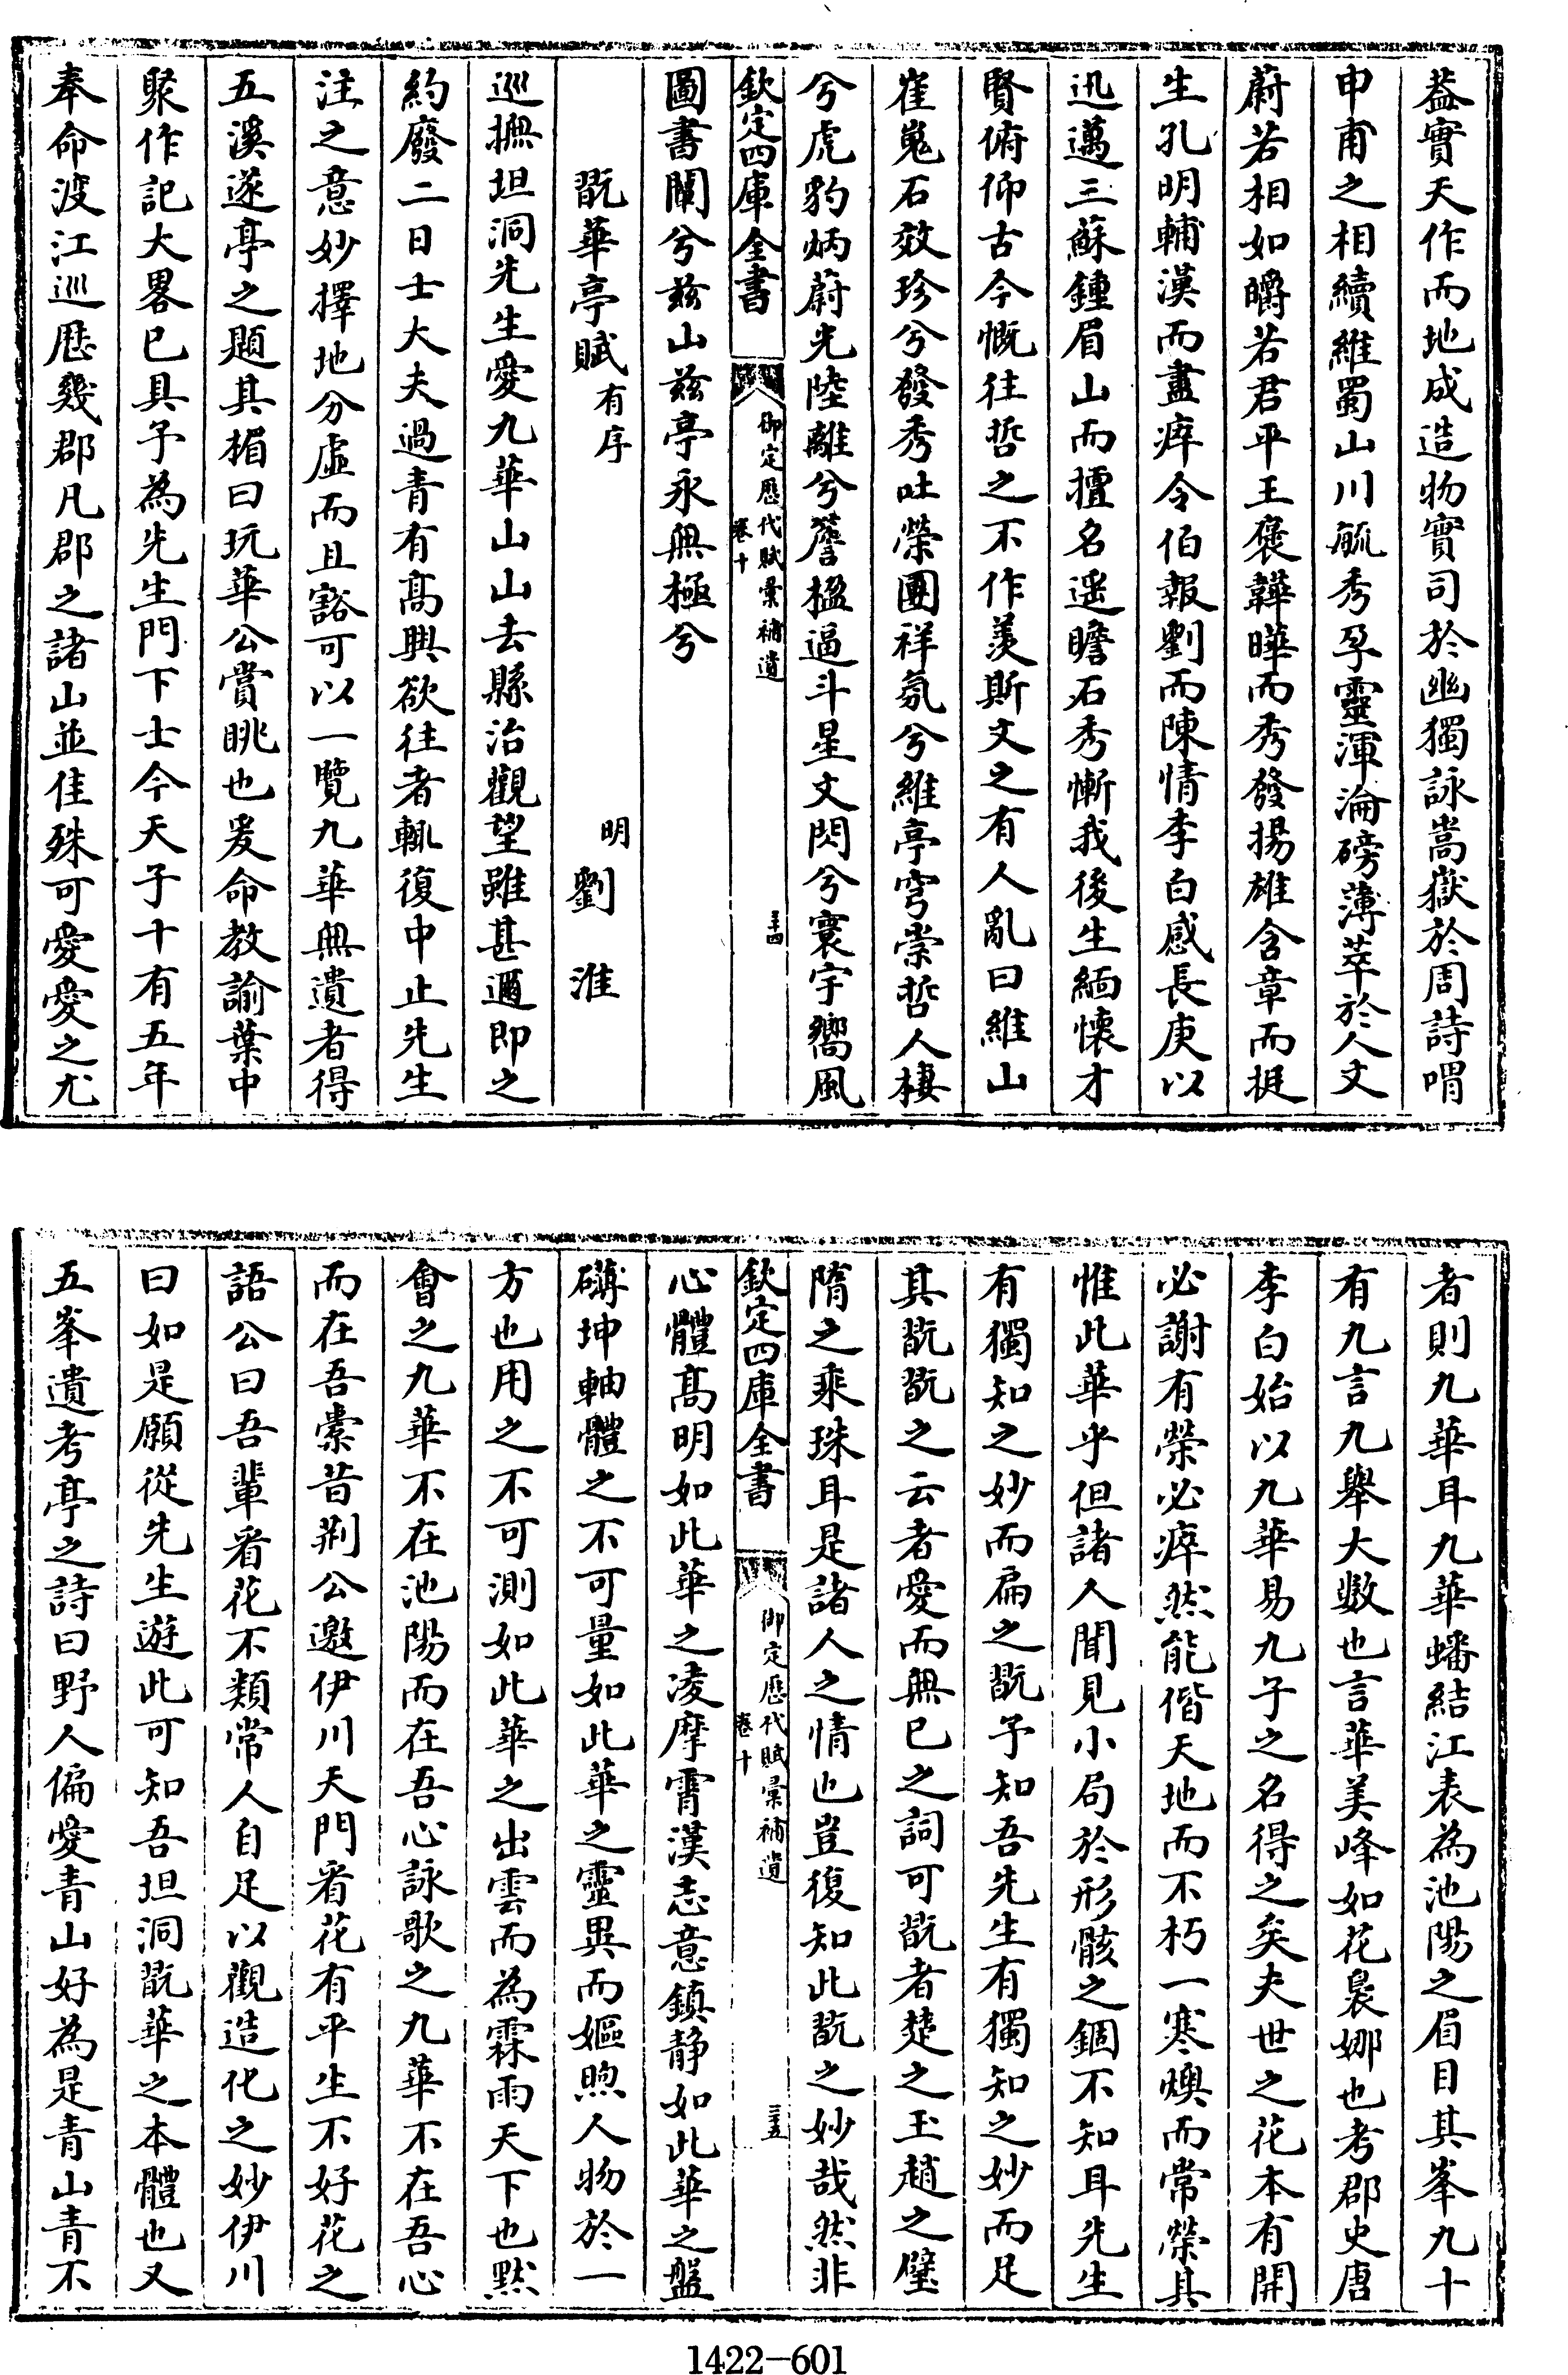 葢實天作而地成造物實司於幽獨詠嵩嶽於周詩喟
申甫之相續維蜀山川毓秀孕靈渾淪磅薄萃於人文
蔚若相如皭若君平王褒韡曄而秀發揚雄含章而挺
生孔明輔漢而盡瘁令伯報劉而陳情李白感長庚以
迅邁三蘇鍾眉山而擅名遥瞻石秀慚我後生緬懷才
賢俯仰古今慨往哲之不作羡斯文之有人亂曰維山
崔嵬石效珍兮發秀吐榮團祥氛兮維亭穹崇哲人棲
兮虎豹炳蔚光陸離兮簷楹逼斗星文閃兮寰宇嚮風
欽定四庫全書
御定歷代賦彚補遺
卷十
三十四
圖書闡兮兹山兹亭永無極兮
翫華亭賦有序
明劉淮
巡撫坦洞先生愛九華山山去縣治觀望雖甚邇即之
約廢二日士大夫過青有髙興欲往者輒復中止先生
注之意妙擇地分虛而且豁可以一覽九華無遺者得
五溪遂亭之題其楣曰玩華公賞眺也爰命教諭葉中
聚作記大畧已具予為先生門下士今天子十有五年
奉命渡江巡厯幾郡凡郡之諸山並佳殊可愛愛之尤
者則九華耳九華蟠結江表為池陽之眉目其峯九十
有九言九舉大數也言華美峰如花裊娜也考郡史唐
李白始以九華易九子之名得之矣夫世之花本有開
必謝有榮必瘁然能偕天地而不朽一寒燠而常榮其
惟此華乎但諸人聞見小局於形骸之錮不知耳先生
有獨知之妙而扁之翫予知吾先生有獨知之妙而足
其翫翫之云者愛而無已之詞可翫者楚之玉趙之璧
隋之乘珠耳是諸人之情也豈復知此翫之妙哉然非
欽定四庫全書
御定歷代賦彚補遺
卷十
三十五
心體髙明如此華之凌摩霄漢志意鎮静如此華之盤
礴坤軸體之不可量如此華之靈異而嫗煦人物於一
方也用之不可測如此華之出雲而為霖雨天下也黙
會之九華不在池陽而在吾心詠歌之九華不在吾心
而在吾橐昔荆公邀伊川天門看花有平生不好花之
語公曰吾輩看花不類常人自足以觀造化之妙伊川
曰如是願從先生遊此可知吾坦洞翫華之本體也又
五峯遺考亭之詩曰野人偏愛青山好為是青山青不
1422—601